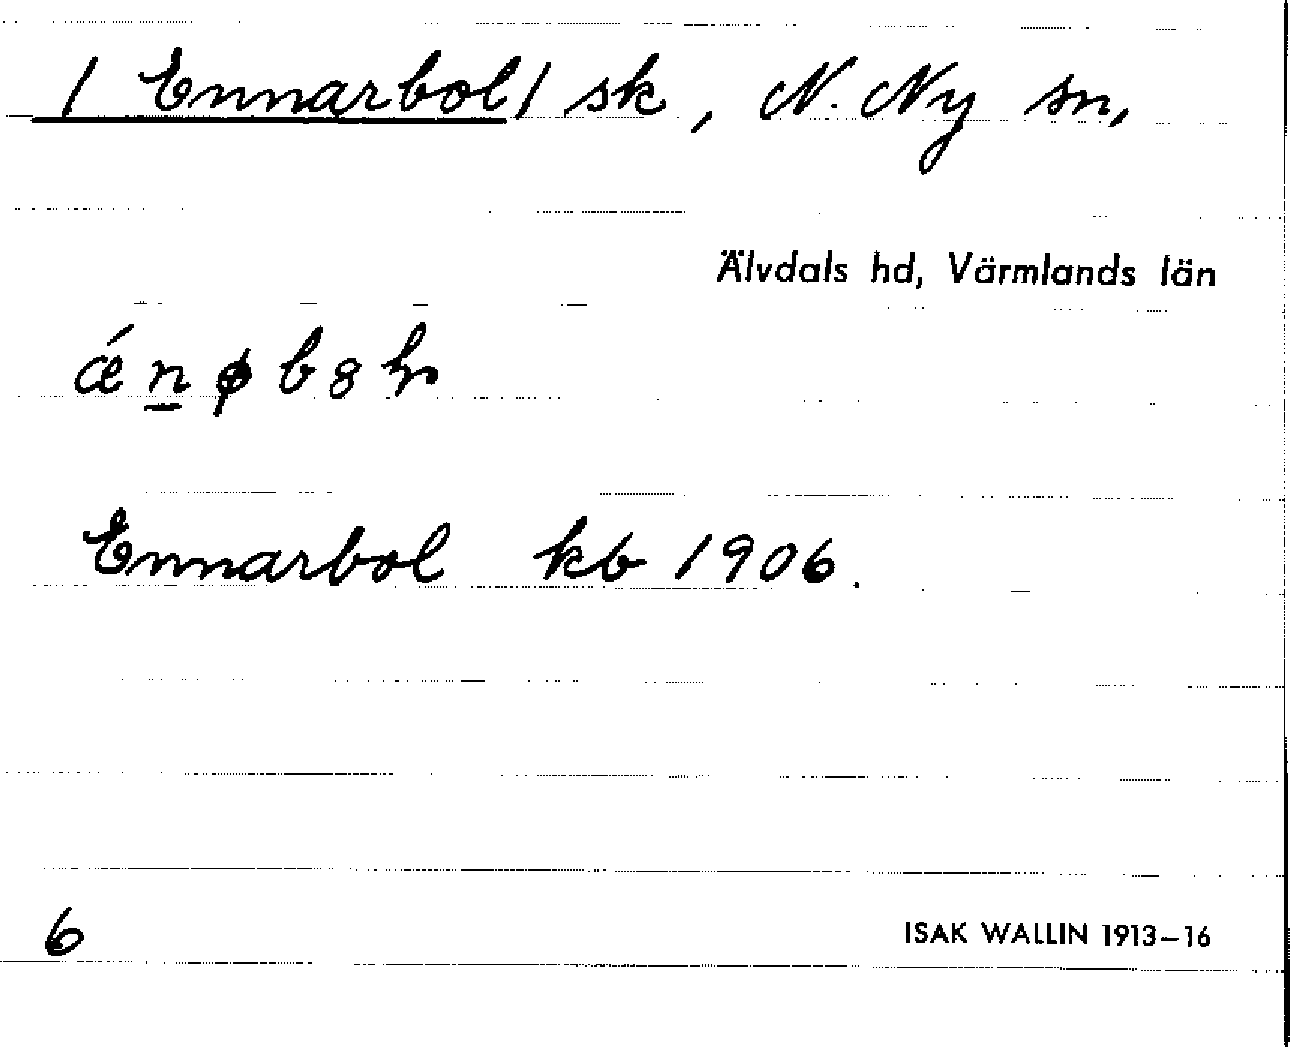 / Ennarbol / sk, N. Ny sn,
Älvdals hd, Värmlands län
Ennarbol kb 1906.
6 ISAK WALLIN 1913–16